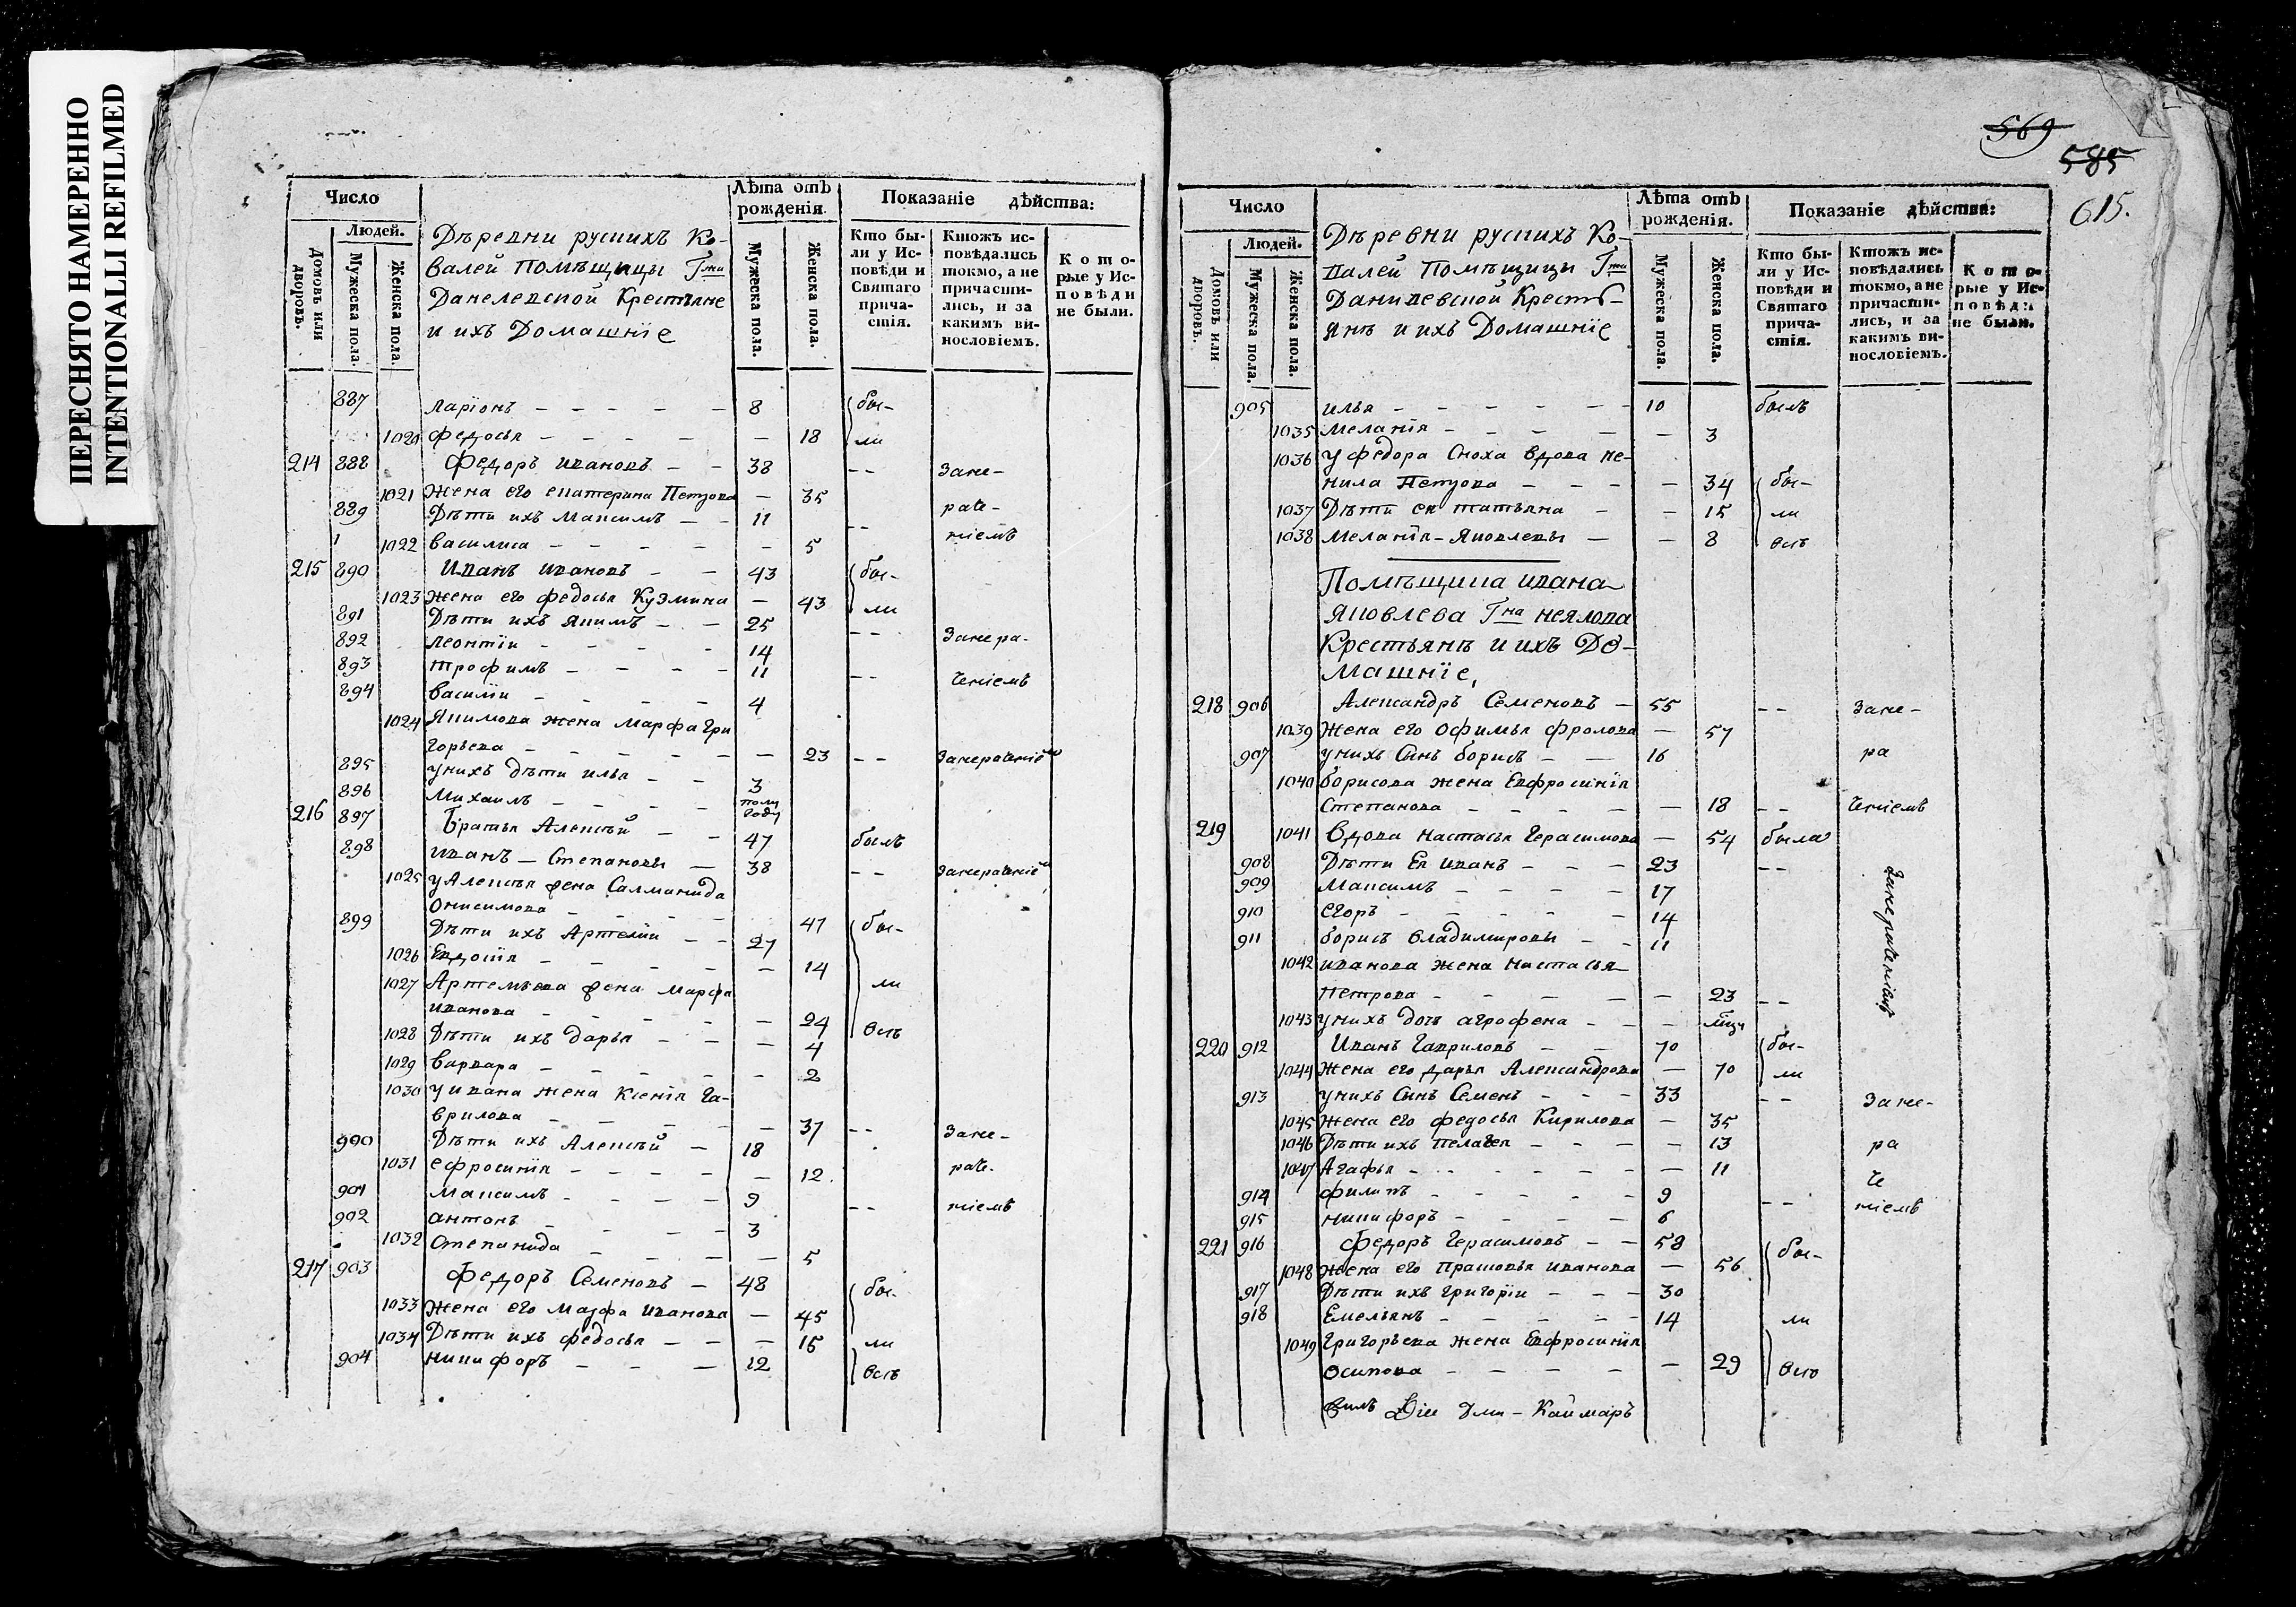 ПЕРЕСНЯТО НАМЕРЕННО
INTENTIONALLI REFILMED
Число
Людей.
Домовъ или дворовъ.
Мужеска пола.
Женска пола.
Деревни руских Ко-
валей Помещицы Гжи
Данелевской Крестьяне
и ихъ Домашнїе
Лѣта отъ рожденія.
Мужеска пола.
Женска пола.
Показаніе дѣйства:
Кто бы-
ли у Ис-
повѣди и
Святаго
прича-
стія.
Ктожъ ис-
повѣдались
токмо, а не
причасти-
лись, и за
какимъ ви-
нословіемъ.
Кото-
рые у Ис-
повѣди
не были.
887 Ларїонъ 8 бы-
1020 Федосья 18 ли
214 888 Федоръ Ивановъ 38 Зане-
1021 Жена его екатерина Петрова 35
889 Дѣти ихъ Максимъ 11 раче-
1022 василиса 5 нїемъ
215 890 Иванъ Ивановъ 43 бы-
1023 Жена его федосья Кузмина 43 ли
891 Дѣти ихъ якимъ 25
892 леонтїи 14 Занера-
893 трофимъ 11
894 василїи 4 ченїемъ
1024 Якимова жена Марфа Гри
горьева 23 Занерачениемъ
895 у нихъ дѣти илья 3
896 Михаилъ полугоду
216 897 Братья Алексѣй 47 былъ
898 иванъ Степановы 38 Занерачениемъ
1025 у Алексѣя жена Саламанида
Онисимова 47
899 Дѣти ихъ Артемїи 27 бы-
1026 Евдокїя 14
1027 Артемьева жена марфа ли
иванова 24
1028 Дѣти ихъ дарья 4 всѣ
1029 варвара 2
1030 у ивана жена Ксенїя Га-
врилова 37 Зане-
900 Дѣти ихъ Алексѣй 18
1031 ефросинїя 12 раче-
901 максимъ 9 нїемъ
902 антонъ 3
1032 Степанида 5
217 903 Федоръ Семеновъ 48 бы-
1033 Жена его Марфа Иванова 45
1034 Дѣти ихъ федосья 15 ли
904 никифоръ 12 всѣ
569
585
615.
Число
Людей.
Домовъ или дворовъ.
Мужеска пола.
Женска пола.
Деревни руских Ко-
валей Помещицы Гжи
Данилевской Кресть-
янѣ и ихъ Домашнїе
Лѣта отъ рожденія.
Мужеска пола.
Женска пола.
Показаніе дѣйства:
Кто бы-
ли у Ис-
повѣди и
Святаго
прича-
стія.
Ктожъ ис-
повѣдались
токмо, а не
причасти-
лись, и за
какимъ ви-
нословіемъ.
Кото-
рые у Ис-
повѣди
не были.
905 илья 10 былъ
1035 Меланїя 3
1036 у федора Сноха вдова не-
нила Петрова 34 бы-
1037 Дѣти ея татьяна 15 ли
1038 Меланїя Яковлевы 8 всѣ
Помѣщика ивана
Яковлева Гна неялова
Крестьянѣ и ихъ До-
машнїе,
218 906 Александръ Семеновъ 55 Зане-
1039 Жена его Офимья фролова 57
907 у нихъ Сынъ борисъ 16 ра
1040 Борисова жена Евфросинїя
Степанова 18 ченїемъ
219 1041 Вдова настасья Герасимова 54 была
908 Дѣти Ея иванъ 23 Занерачениемъ
909 Максимъ 17
910 егоръ 14
911 борисъ владимировы 11
1042 иванова жена настасья
петрова 23
1043 у нихъ дочь агрофена
220 912 Иванъ Гавриловъ 70 бы-
1044 Жена его дарья Александрова 70 ли
913 у нихъ Сынъ Семенъ 33 Зане-
1045 Жена его федосья Кирилова 35
1046 Дѣти ихъ пелагея 13 ра
1047 Агафья 11 че
914 филипъ 9 нїемъ
915 никифоръ 6
221 916 Федоръ Герасимовъ 58 бы-
1048 Жена его Прасковья иванова 56
917 Дѣти ихъ григорїи 30
918 Емельянъ 14 ли
1049 Григорьева жена Евфросинїя
осипова 29 всѣ